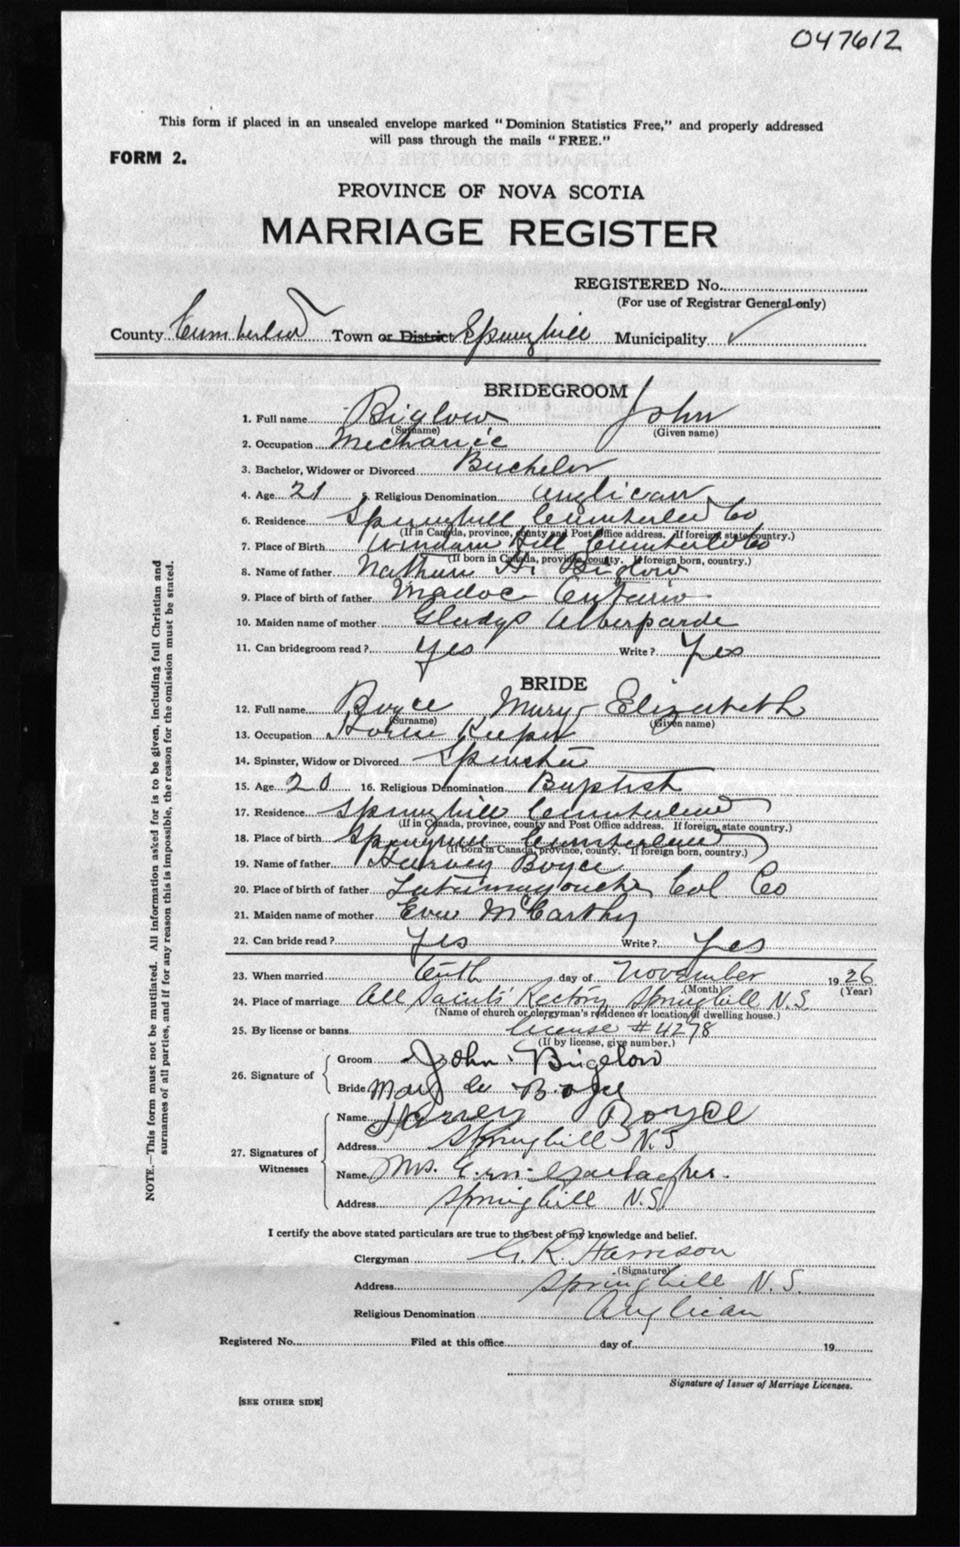 047612
This form if placed in an unsealed envelope marked "Dominion Statistics Free," and properly addressed
will pass through the mails "FREE."
FORM 2.
PROVINCE OF NOVA SCOTIA
MARRIAGE REGISTER
REGISTERED No.
(For use of Registrar General only)
County Cumberland Town or District Springhill Municipality
BRIDEGROOM
1. Full name Biglow John
(Surname) (Given name)
2. Occupation Mechanic
3. Bachelor, Widower or Divorced Bachelor
4. Age 21 5. Religious Denomination Anglican
6. Residence Springhill Cumberland Co
(If in Canada, province, county and Post Office address. If foreign state country.)
7. Place of Birth Windam Hill Cumberland Co
(If born in Canada, province, county. If foreign born, country.)
8. Name of father Nathan H. Biglow
9. Place of birth of father Madoc Ontario
10. Maiden name of mother Gladys
11. Can bridegroom read? Yes Write? Yes
BRIDE
12. Full name Boyce Mary Elizabeth
(Surname) (Given name)
13. Occupation House Keeper
14. Spinster, Widow or Divorced Spinster
15. Age 20 16. Religious Denomination Baptist
17. Residence Springhill Cumberland
(If in Canada, province, county and Post Office address. If foreign, state country.)
18. Place of birth Springhill Cumberland
(If born in Canada, province, county. If foreign born, country.)
19. Name of father Harvey Boyce
20. Place of birth of father Tatamagouche Col Co
21. Maiden name of mother Eva McCarthy
22. Can bride read? Yes Write? Yes
23. When married tenth day of November 1926
(Month) (Year)
24. Place of marriage All Saints' Rectory Springhill N.S.
(Name of church or clergyman's residence or location of dwelling house.)
25. By license or banns license #4278
(If by license, give number.)
26. Signature of Groom John Bigelow
Bride Mary Boyce
27. Signatures of Witnesses
Name Harvey Boyce
Address Springhill N.S.
Name Mrs. Gallagher.
Address Springhill N.S.
I certify the above stated particulars are true to the best of my knowledge and belief.
Clergyman G. K. Harrison
(Signature)
Address Springhill N.S.
Religious Denomination Anglican
Registered No. Filed at this office day of 19
Signature of Issuer of Marriage Licenses.
[SEE OTHER SIDE]
NOTE.—This form must not be mutilated. All information asked for is to be given, including full Christian and
surnames of all parties, and if for any reason this is impossible, the reason for the omission must be stated.